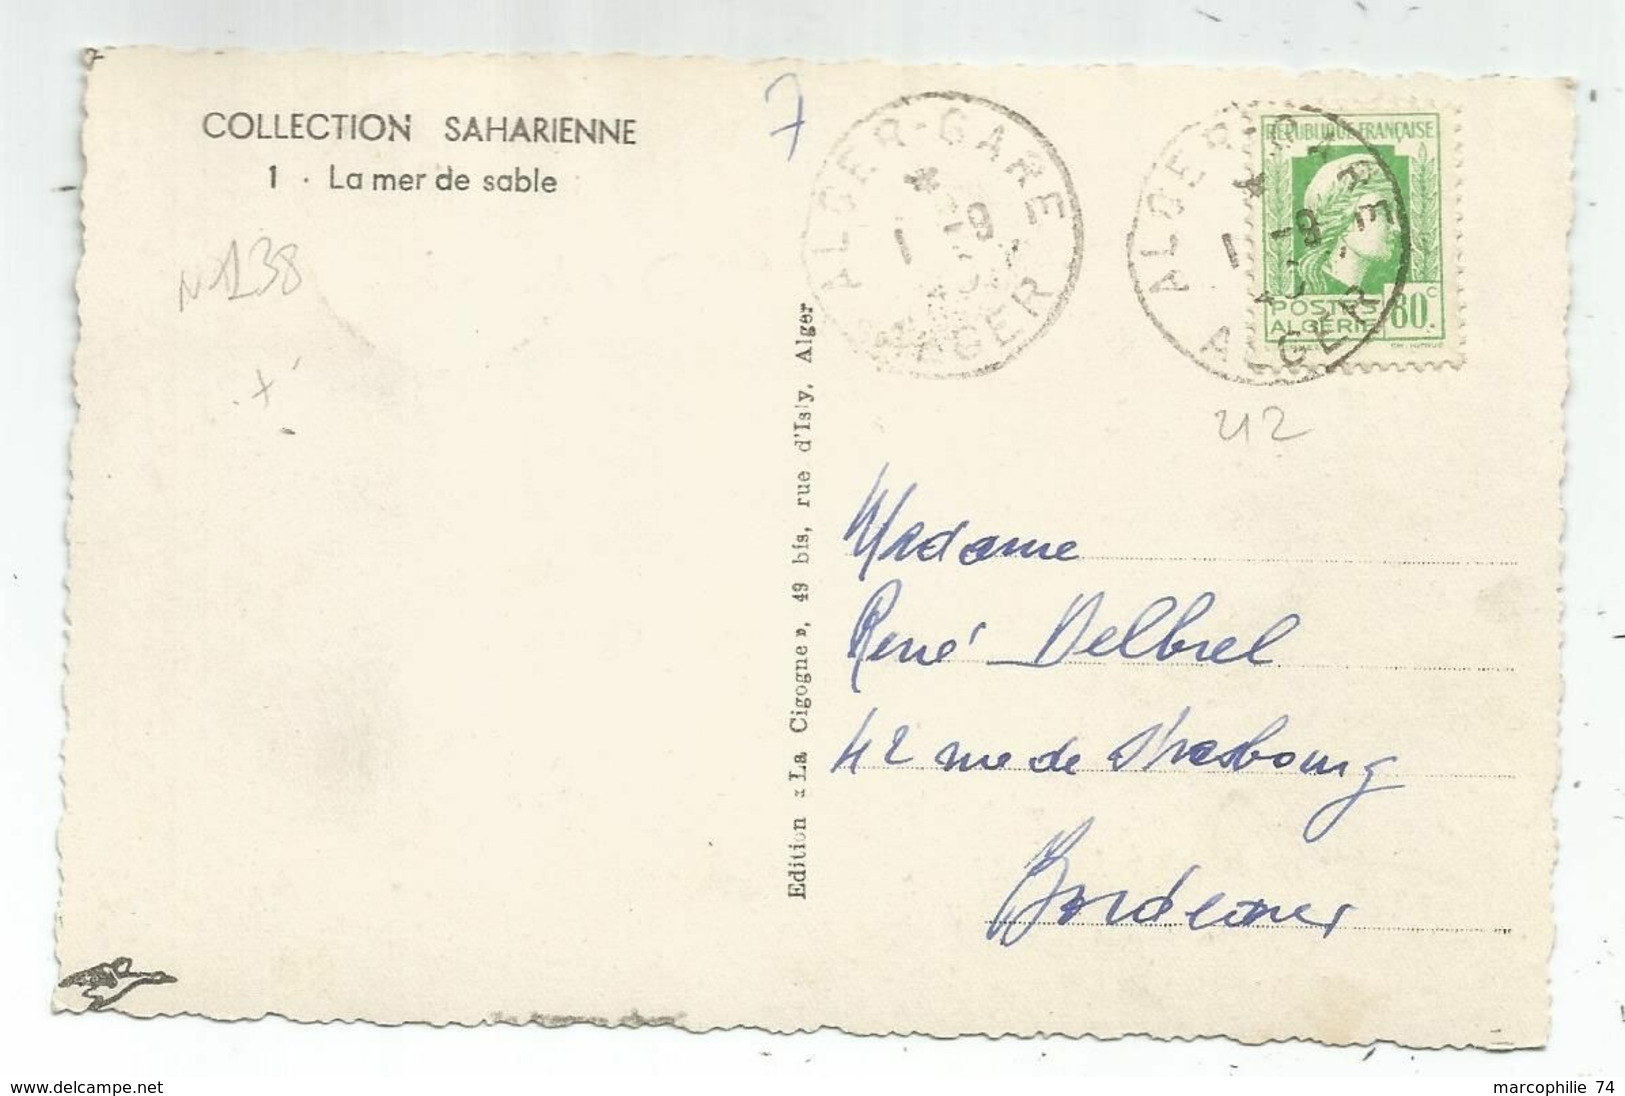 COLLECTION SAHARIENNE
1 . La mer de sable
N 138
7
ALGER-GARE
1 -9
ALGER
ALGER-GARE
1 -9
ALGER
RÉPUBLIQUE FRANÇAISE
POSTES
ALGÉRIE 80c.
212
Edition « La Cigogne », 49 bis, rue d'Isly, Alger
Madame
René Delbrel
42 rue de Strasbourg
Bordeaux
www.delcampe.net
marcophilie 74